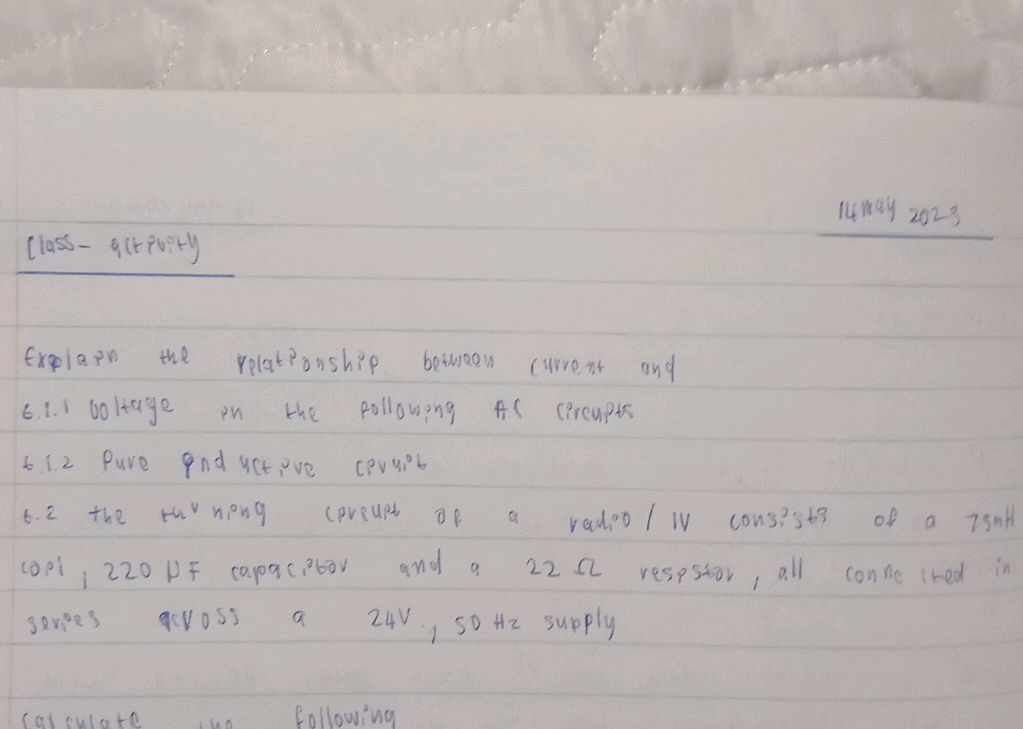 14 may 2023
Class - activity
Explain the relationship between current and
6.1.1 voltage in the following AC circuits
6.1.2 Pure inductive circuit
6.2 the turning circuit of a radio / TV consists of a 75mH
coil, 220 µF capacitor and a 22 Ω resistor, all connected in
series across a 24V, 50 Hz supply
Calculate the following